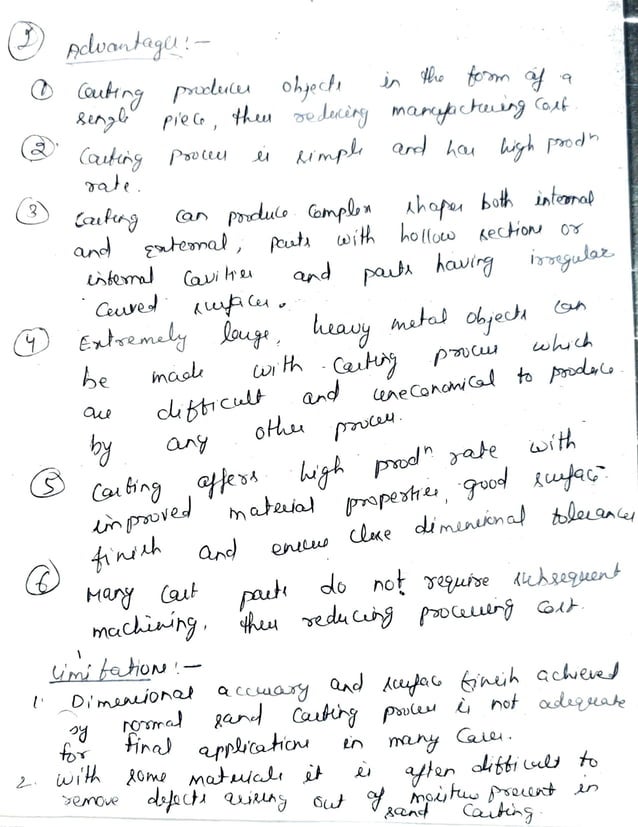 ① Advantages:-
① Casting produces objects in the form of a
single piece, thus reducing manufacturing cost.
② Casting process is simple and has high prodⁿ
rate.
③ Casting can produce complex shapes both internal
and external, parts with hollow sections or
internal cavities and parts having irregular
curved surfaces.
④ Extremely large, heavy metal objects can
be made with casting process which
are difficult and uneconomical to produce
by any other process.
⑤ Casting offers high prodⁿ rate with
improved material properties, good surface
finish and ensure close dimensional tolerances
⑥ Many cast parts do not require subsequent
machining, thus reducing processing cost.
Limitations:-
1. Dimensional accuracy and surface finish achieved
by normal sand casting process is not adequate
for final application in many cases.
2. with some materials it is often difficult to
remove defects arising out of moisture present in
sand casting.